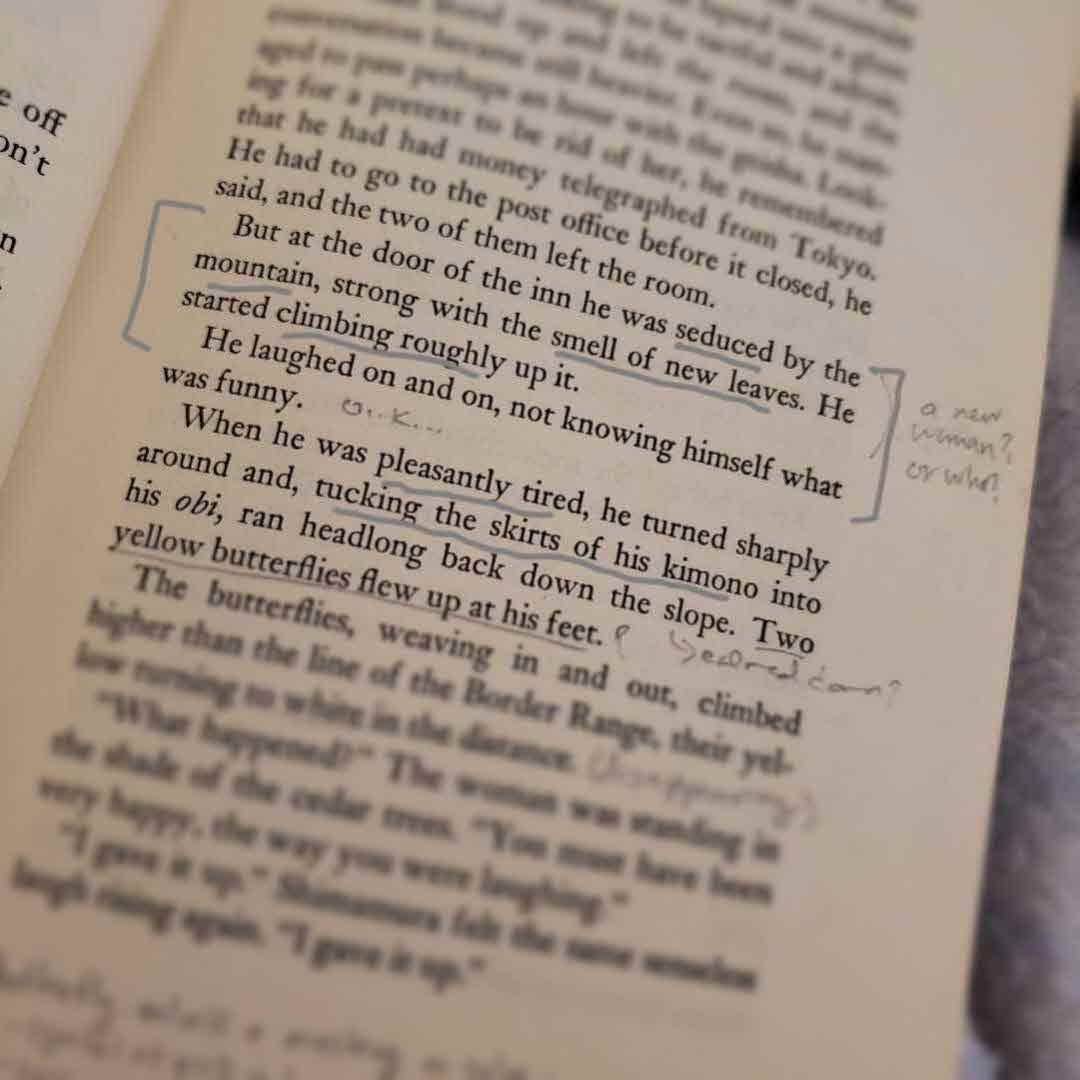 e off
on't
n
stood up and left the room, and the
conversation became still heavier. Even so, he man-
aged to pass perhaps an hour with the geisha. Look-
ing for a pretext to be rid of her, he remembered
that he had had money telegraphed from Tokyo.
He had to go to the post office before it closed, he
said, and the two of them left the room.
But at the door of the inn he was seduced by the
mountain, strong with the smell of new leaves. He
started climbing roughly up it.
a new
woman?
or who?
He laughed on and on, not knowing himself what
was funny. O..K...
When he was pleasantly tired, he turned sharply
around and, tucking the skirts of his kimono into
his obi, ran headlong back down the slope. Two
yellow butterflies flew up at his feet.
The butterflies, weaving in and out, climbed
higher than the line of the Border Range, their yel-
low turning to white in the distance.
"What happened?" The woman was standing in
the shade of the cedar trees. "You must have been
very happy, the way you were laughing."
"I gave it up." Shimamura felt the same senseless
laugh rising again. "I gave it up."